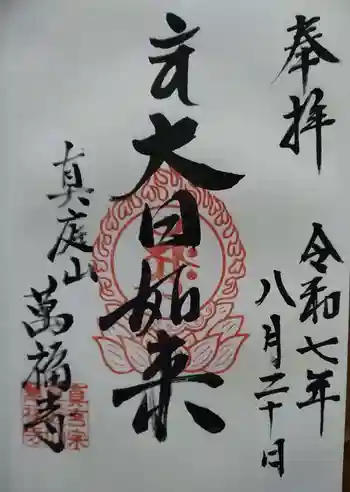 奉拝
令和七年
八月二十日
大日如来
真庭山
萬福寺